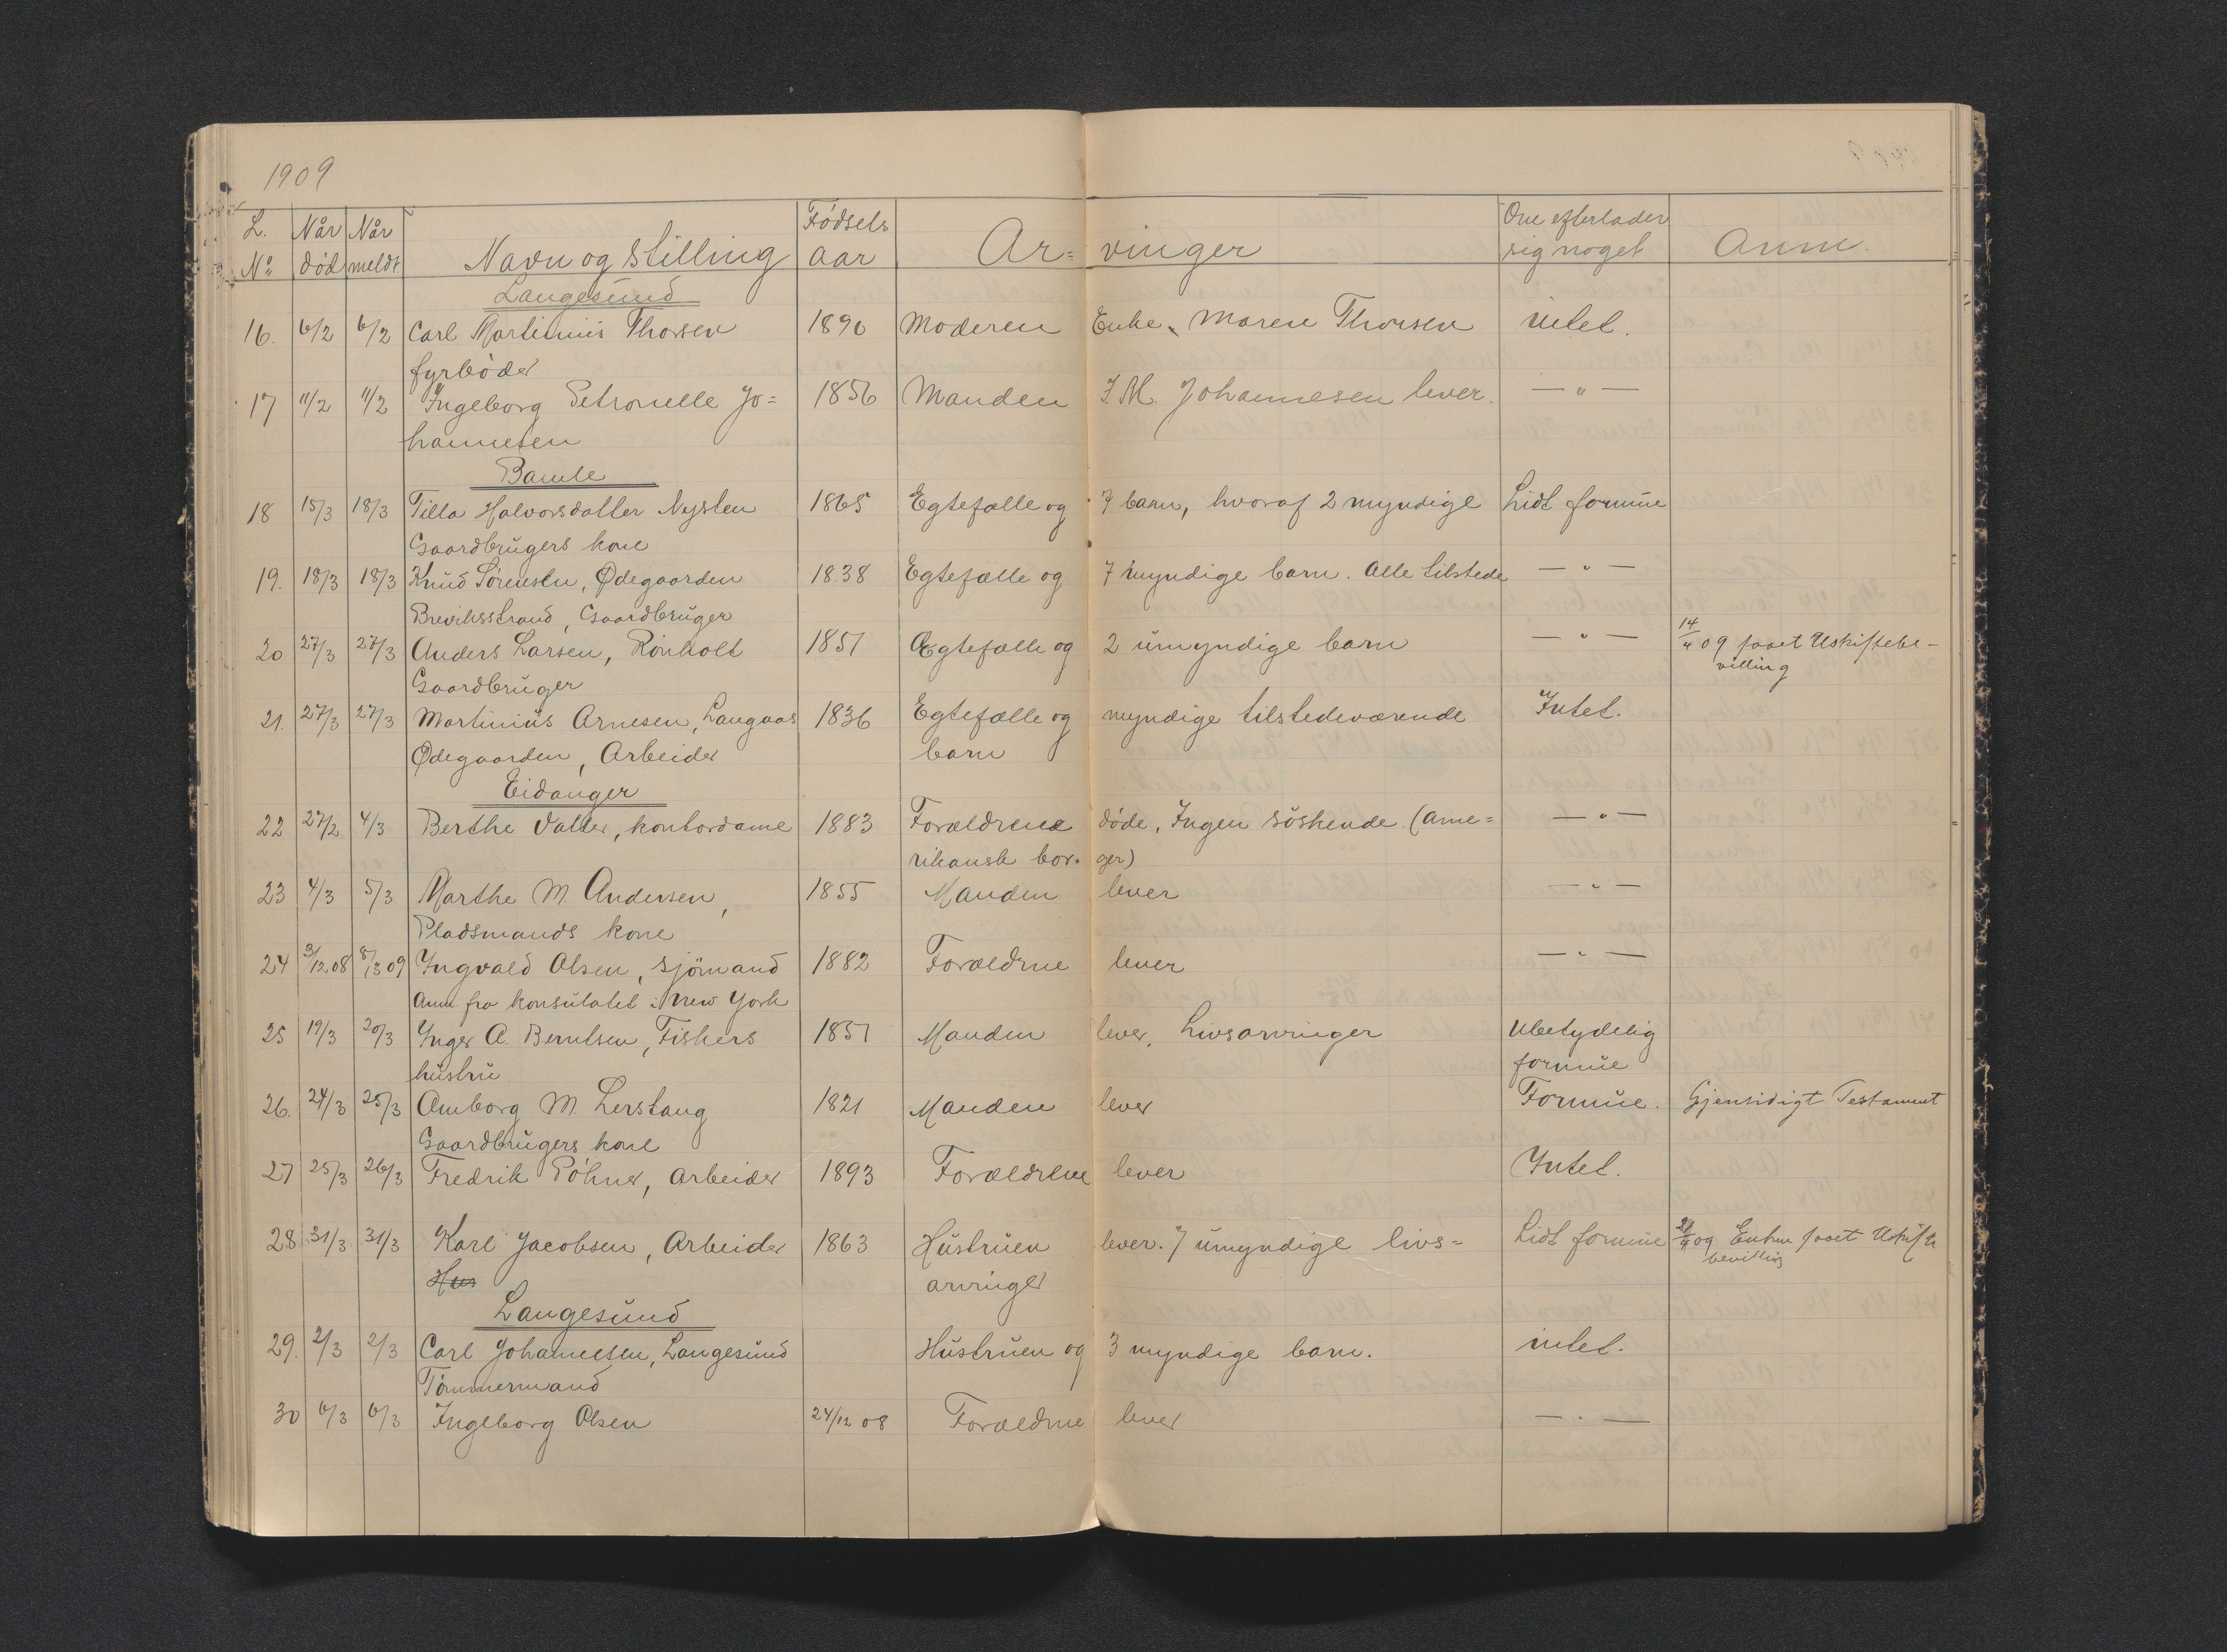 1909
L. Når Når Fødsels Om efterlader
No død meldt Navn og Stilling aar Ar= vinger sig noget Anm.
Langesund
16. 6/2 6/2 Carl Martinius Thorsen 1890 Moderen Enke, Maren Thorsen intet.
fyrbøder
17 11/2 11/2 Ingeborg Petronelle Jo= 1856 Manden J. M. Johannesen lever. — " —
hannesen
Bamle
18 15/3 18/3 Tilla Halvorsdatter Nysten 1865 Egtefælle og 7 barn, hvoraf 2 myndige Lidt formue
Gaardbrugers kone
19. 18/3 18/3 Knud Sørensen, Ødegaarden 1838 Egtefælle og 7 myndige barn. Alle tilstede — " —
Breviksstrand, Gaardbruger
20 27/3 27/3 Anders Larsen, Rönholt 1851 Egtefælle og 2 umyndige barn — " — 14/4 09 faaet Uskiftebe-
Gaardbruger villing
21. 27/3 27/3 Martinius Arnesen, Langaas 1836 Egtefælle og myndige tilstedeværende Intet.
Ødegaarden, Arbeider barn
Eidanger
22 27/2 4/3 Berthe Valler, kontordame 1883 Forældrene døde, Ingen söskende. (Ame= — " —
rikansk bor- ger)
23 4/3 5/3 Marthe M. Andersen, 1855 Manden lever — " —
Pladsmands kone
24 3/12 08 8/3 09 Ingvald Olsen, sjömand 1882 Forældrne lever — " —
Anm. fra konsulatet i New York
25 19/3 20/3 Inger A. Berntsen, Fiskers 1851 Manden lever, Livsarvinger Ubetydelig
hustru formue
26. 24/3 25/3 Amborg M. Lerstang 1821 Manden lever Formue. Gjensidigt Testament
Gaardbrugers kone
27 25/3 26/3 Fredrik Pöhner, Arbeider 1893 Forældrene lever Intet.
28 31/3 31/3 Karl Jacobsen, Arbeider 1863 Hustruen lever. 7 umyndige livs= Lidt formue 21/4 09 Enken faaet Uskifte
Hus arvinger bevilling
Langesund
29. 2/3 2/3 Carl Johannesen, Langesund Hustruen og 3 myndige barn. intet.
Tömmermand
30 6/3 6/3 Ingeborg Olsen 24/12 08 Forældrne lever — " —